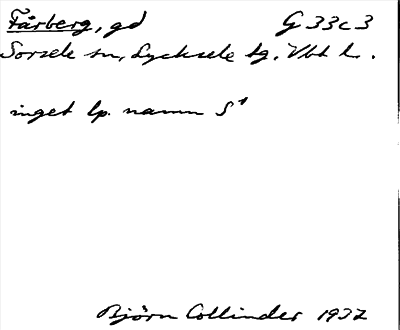 Fårberg, gd G 33c3
Sorsele sn, Lycksele tg. Vbt l.
inget lp. namn S¹
Björn Collinder 1937